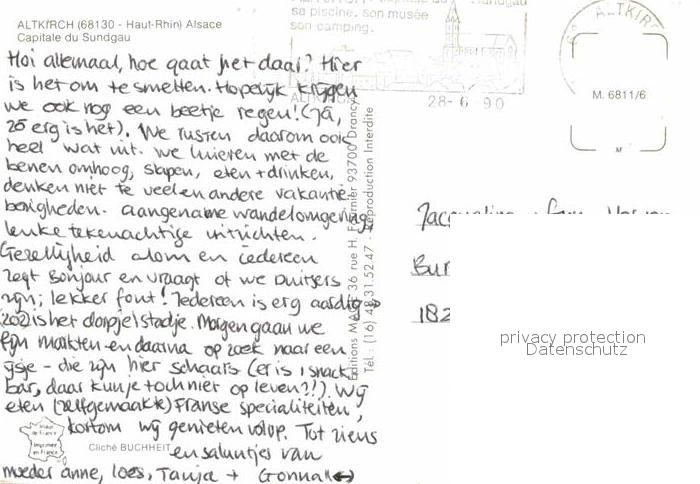 ALTKIRCH (68130 - Haut-Rhin) Alsace
Capitale du Sundgau
Sundgau
sa piscine, son musée
son camping.
ALTKIRCH
28-6-90
M. 6811/6
Hoi allemaal, hoe gaat het daar? Hier
is het om te smelten. Hopelijk krijgen
we ook nog een beetje regen! (ja,
zo erg is het). We rusten daarom ook
heel wat uit. We luieren met de
benen omhoog, slapen, eten + drinken,
denken niet te veel en andere vakantie-
bezigheden. aangename wandelomgeving,
leuke tekenachtige uitzichten.
Gezelligheid alom en iedereen
zegt Bonjour en vraagt of we Duitsers
zijn; lekker fout! Iedereen is erg aardig →
zo is het dorpje/stadje. Morgen gaan we
fijn markten - en daarna op zoek naar een
ijsje - die zijn hier schaars (er is 1 snack-
bar, daar kun je toch niet op leven?!). Wij
eten (zelfgemaakte) Franse specialiteiten,
kortom wij genieten volop. Tot ziens
en saluutjes van
moeder anne, loes, Tanja + Gonna
Editions 36 rue H. Fournier 93700 Drancy
Tél.: (16) 48.31.52.47 - Reproduction Interdite
Jacqueline
Bur
182
privacy protection
Datenschutz
Imprimé en France
Cliché BUCHHEIT